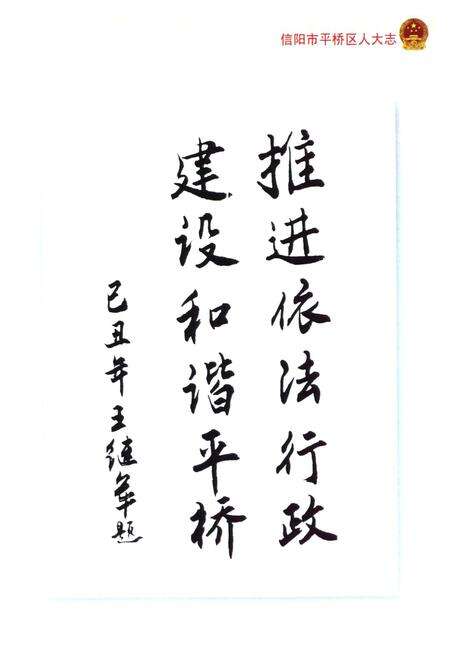 信阳市平桥区人大志
推进依法行政
建设和谐平桥
己丑年王继华题